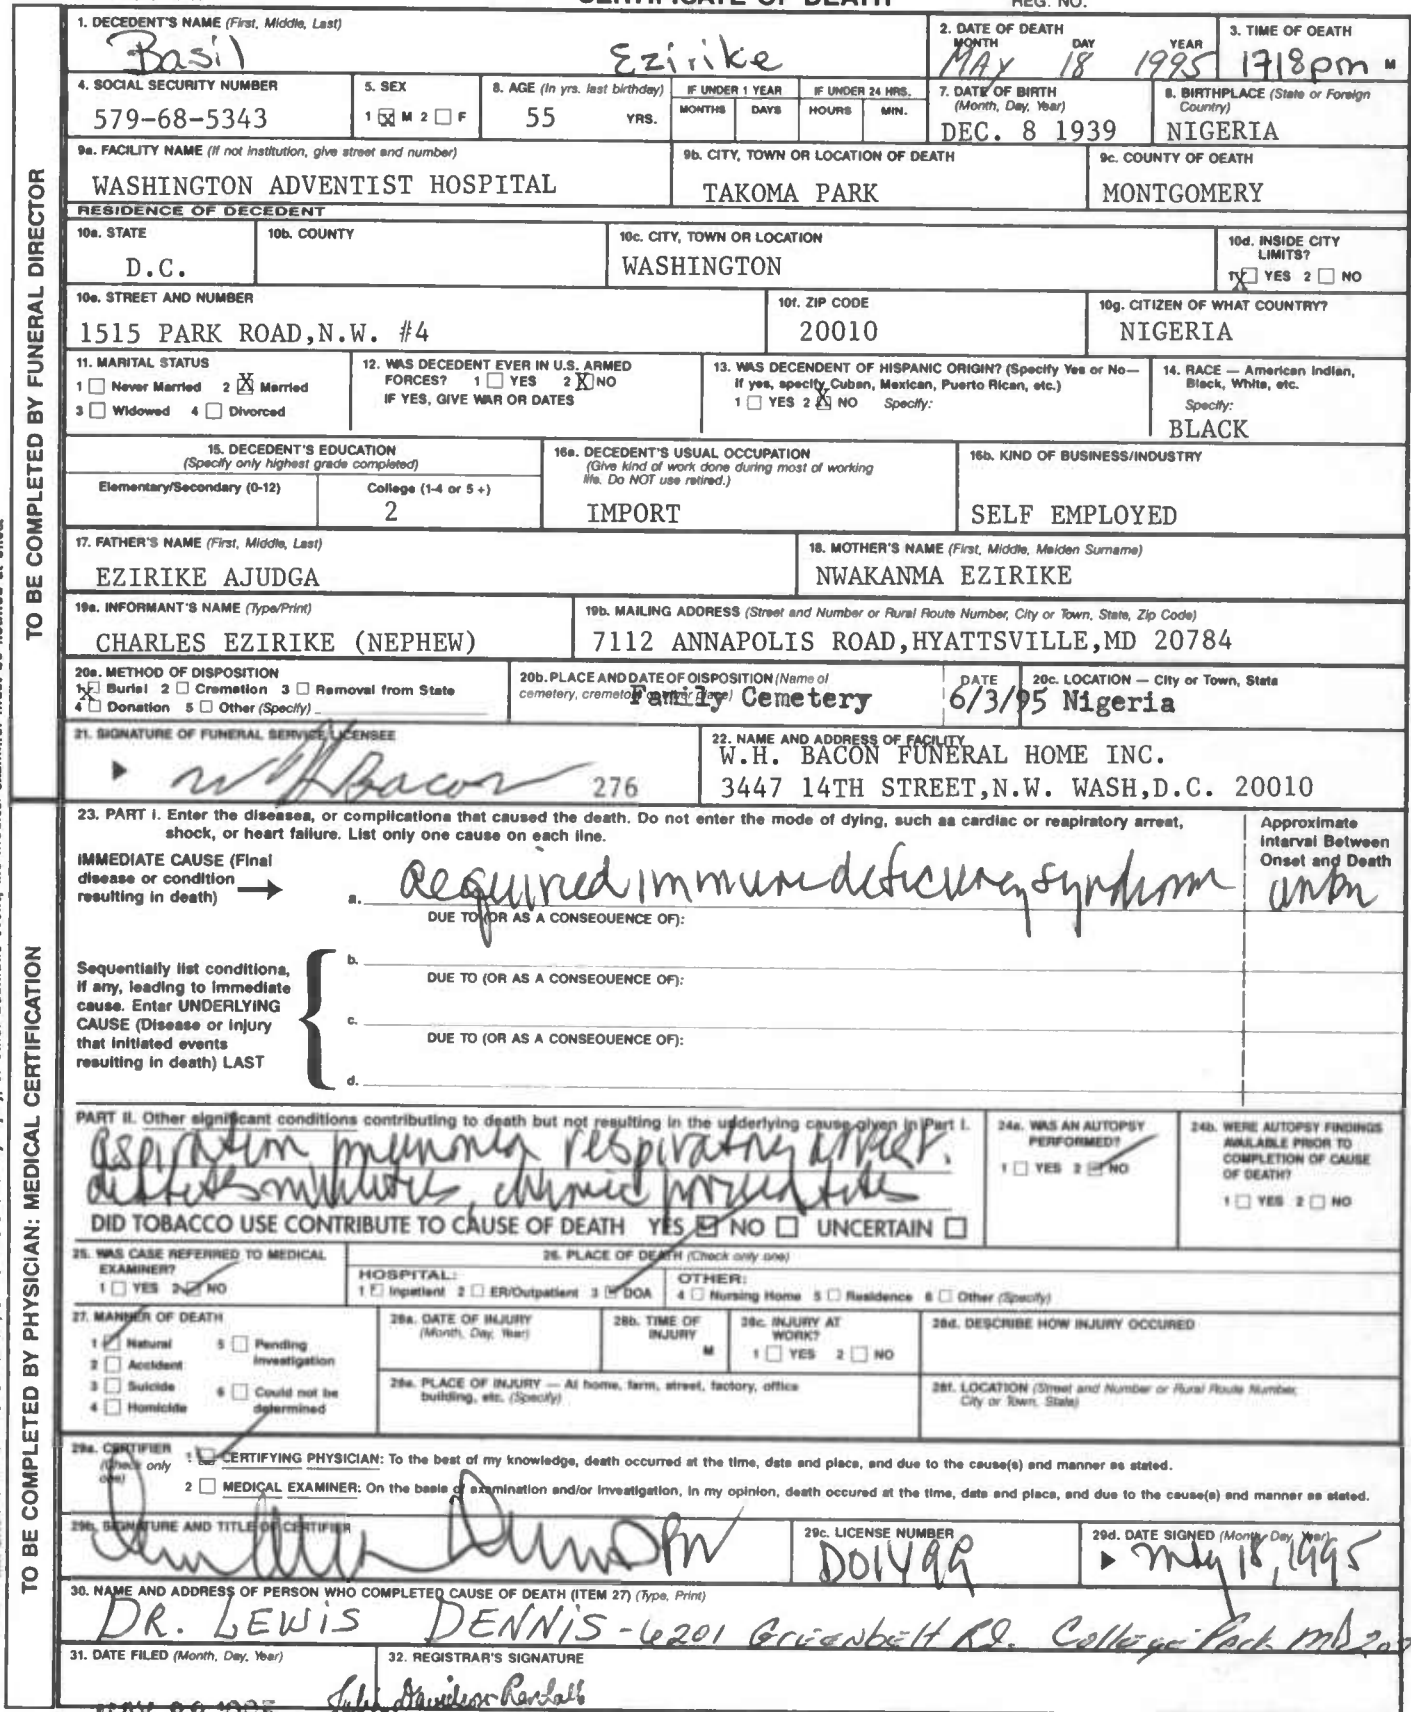 CERTIFICATE OF DEATH
REG. NO.
1. DECEDENT'S NAME (First, Middle, Last)
Basil Ezirike
2. DATE OF DEATH
MONTH DAY YEAR
MAY 18 1995
3. TIME OF DEATH
1718pm M
4. SOCIAL SECURITY NUMBER
579-68-5343
5. SEX
1 ☒ M 2 ☐ F
8. AGE (In yrs. last birthday)
55 YRS.
IF UNDER 1 YEAR
MONTHS DAYS
IF UNDER 24 HRS.
HOURS MIN.
7. DATE OF BIRTH
(Month, Day, Year)
DEC. 8 1939
8. BIRTHPLACE (State or Foreign
Country)
NIGERIA
9a. FACILITY NAME (If not institution, give street and number)
WASHINGTON ADVENTIST HOSPITAL
9b. CITY, TOWN OR LOCATION OF DEATH
TAKOMA PARK
9c. COUNTY OF DEATH
MONTGOMERY
RESIDENCE OF DECEDENT
10a. STATE
D.C.
10b. COUNTY
10c. CITY, TOWN OR LOCATION
WASHINGTON
10d. INSIDE CITY
LIMITS?
1 ☒ YES 2 ☐ NO
10e. STREET AND NUMBER
1515 PARK ROAD,N.W. #4
10f. ZIP CODE
20010
10g. CITIZEN OF WHAT COUNTRY?
NIGERIA
11. MARITAL STATUS
1 ☐ Never Married 2 ☒ Married
3 ☐ Widowed 4 ☐ Divorced
12. WAS DECEDENT EVER IN U.S. ARMED
FORCES? 1 ☐ YES 2 ☒ NO
IF YES, GIVE WAR OR DATES
13. WAS DECENDENT OF HISPANIC ORIGIN? (Specify Yes or No—
If yes, specify Cuban, Mexican, Puerto Rican, etc.)
1 ☐ YES 2 ☒ NO Specify:
14. RACE — American Indian,
Black, White, etc.
Specify:
BLACK
15. DECEDENT'S EDUCATION
(Specify only highest grade completed)
Elementary/Secondary (0-12)
College (1-4 or 5 +)
2
16a. DECEDENT'S USUAL OCCUPATION
(Give kind of work done during most of working
life. Do NOT use retired.)
IMPORT
16b. KIND OF BUSINESS/INDUSTRY
SELF EMPLOYED
17. FATHER'S NAME (First, Middle, Last)
EZIRIKE AJUDGA
18. MOTHER'S NAME (First, Middle, Maiden Surname)
NWAKANMA EZIRIKE
19a. INFORMANT'S NAME (Type/Print)
CHARLES EZIRIKE (NEPHEW)
19b. MAILING ADDRESS (Street and Number or Rural Route Number, City or Town, State, Zip Code)
7112 ANNAPOLIS ROAD,HYATTSVILLE,MD 20784
20a. METHOD OF DISPOSITION
1 ☒ Burial 2 ☐ Cremation 3 ☐ Removal from State
4 ☐ Donation 5 ☐ Other (Specify)
20b. PLACE AND DATE OF DISPOSITION (Name of
cemetery, crematory or other place)
Family Cemetery
DATE
6/3/95
20c. LOCATION — City or Town, State
Nigeria
21. SIGNATURE OF FUNERAL SERVICE LICENSEE
W H Bacon 276
22. NAME AND ADDRESS OF FACILITY
W.H. BACON FUNERAL HOME INC.
3447 14TH STREET,N.W. WASH,D.C. 20010
TO BE COMPLETED BY FUNERAL DIRECTOR
23. PART I. Enter the diseases, or complications that caused the death. Do not enter the mode of dying, such as cardiac or respiratory arrest,
shock, or heart failure. List only one cause on each line.
Approximate
Interval Between
Onset and Death
IMMEDIATE CAUSE (Final
disease or condition
resulting in death)
a. acquired immune deficiency syndrom unkn
DUE TO (OR AS A CONSEQUENCE OF):
Sequentially list conditions,
if any, leading to immediate
cause. Enter UNDERLYING
CAUSE (Disease or injury
that initiated events
resulting in death) LAST
b.
DUE TO (OR AS A CONSEQUENCE OF):
c.
DUE TO (OR AS A CONSEQUENCE OF):
d.
PART II. Other significant conditions contributing to death but not resulting in the underlying cause given in Part I.
aspiration pneumonia respiratory arrest.
diabetes mellitus, chronic
DID TOBACCO USE CONTRIBUTE TO CAUSE OF DEATH YES ☑ NO ☐ UNCERTAIN ☐
24a. WAS AN AUTOPSY
PERFORMED?
1 ☐ YES 2 ☑ NO
24b. WERE AUTOPSY FINDINGS
AVAILABLE PRIOR TO
COMPLETION OF CAUSE
OF DEATH?
1 ☐ YES 2 ☐ NO
25. WAS CASE REFERRED TO MEDICAL
EXAMINER?
1 ☐ YES 2 ☑ NO
26. PLACE OF DEATH (Check only one)
HOSPITAL:
1 ☐ Inpatient 2 ☐ ER/Outpatient 3 ☑ DOA
OTHER:
4 ☐ Nursing Home 5 ☐ Residence 6 ☐ Other (Specify)
27. MANNER OF DEATH
1 ☑ Natural 5 ☐ Pending
Investigation
2 ☐ Accident
3 ☐ Suicide 6 ☐ Could not be
determined
4 ☐ Homicide
28a. DATE OF INJURY
(Month, Day, Year)
28b. TIME OF
INJURY
M
28c. INJURY AT
WORK?
1 ☐ YES 2 ☐ NO
28d. DESCRIBE HOW INJURY OCCURED
28e. PLACE OF INJURY — At home, farm, street, factory, office
building, etc. (Specify)
28f. LOCATION (Street and Number or Rural Route Number,
City or Town, State)
29a. CERTIFIER
(Check only
one)
1 ☑ CERTIFYING PHYSICIAN: To the best of my knowledge, death occurred at the time, date and place, and due to the cause(s) and manner as stated.
2 ☐ MEDICAL EXAMINER: On the basis of examination and/or investigation, in my opinion, death occured at the time, date and place, and due to the cause(s) and manner as stated.
29b. SIGNATURE AND TITLE OF CERTIFIER
29c. LICENSE NUMBER
D01499
29d. DATE SIGNED (Month, Day, Year)
May 18, 1995
30. NAME AND ADDRESS OF PERSON WHO COMPLETED CAUSE OF DEATH (ITEM 27) (Type, Print)
DR. LEWIS DENNIS - 6201 Greenbelt Rd. College Park MD
31. DATE FILED (Month, Day, Year)
32. REGISTRAR'S SIGNATURE
Julia Davidson-Randall
TO BE COMPLETED BY PHYSICIAN: MEDICAL CERTIFICATION